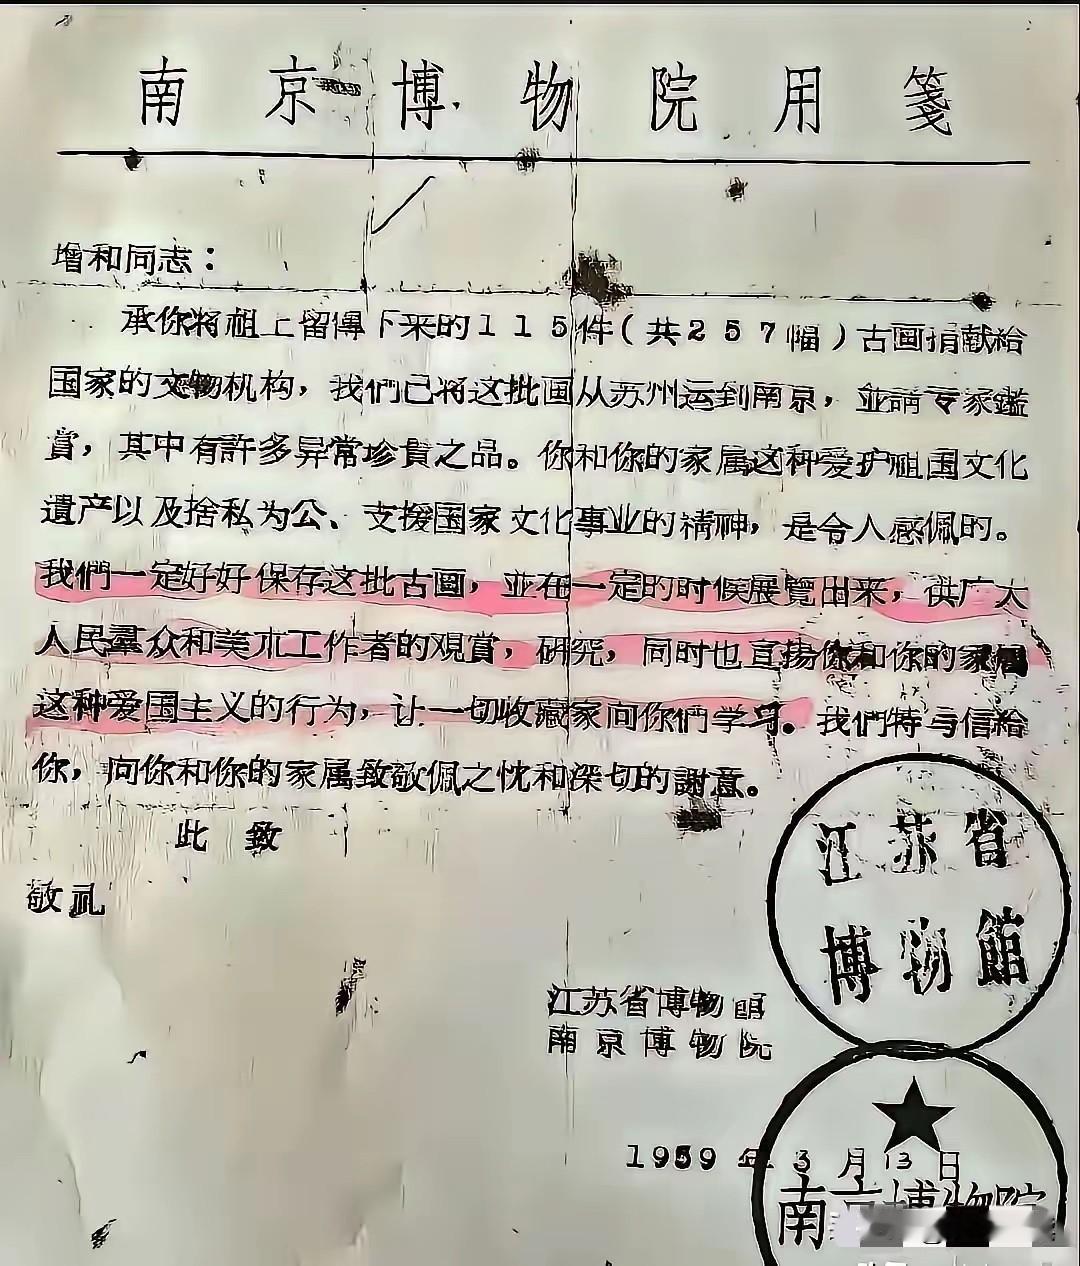 南京博物院用箋
增和同志：
承你将祖上留傳下来的115件（共257幅）古画捐献給
国家的文物机构，我們已将这批画从苏州运到南京，並請专家鑑
賞，其中有許多异常珍貴之品。你和你的家属这种爱护祖国文化
遺产以及捨私为公、支援国家文化事业的精神，是令人感佩的。
我們一定好好保存这批古画，並在一定的时候展覽出来，供广大
人民羣众和美朮工作者的观賞，研究，同时也宣揚你和你的家属
这种爱国主义的行为，让一切收藏家向你們学习。我們特写信給
你，向你和你的家属致敬佩之忱和深切的謝意。
此致
敬礼
江苏省
博物館
江苏省博物館
南京博物院
1959年3月13日
南京博物院